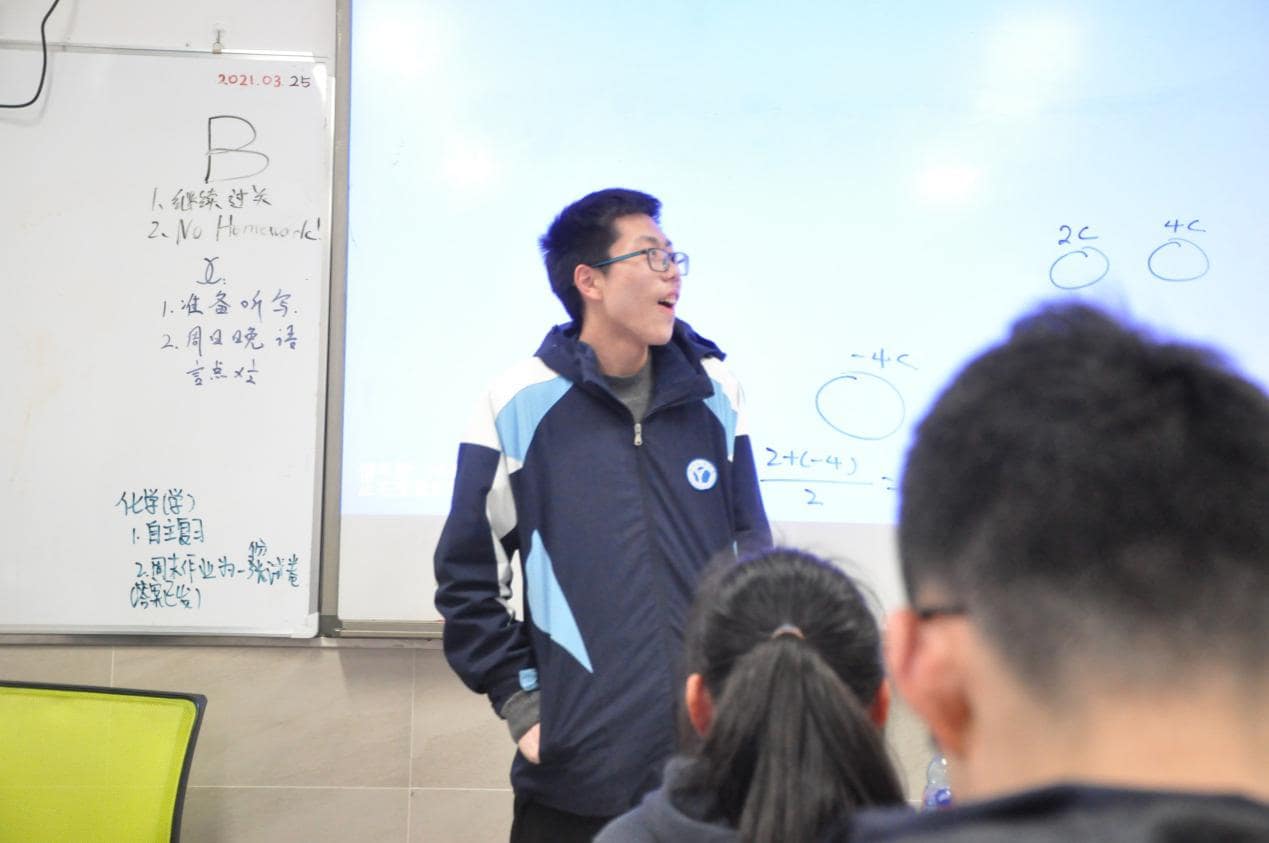 2021.03.25
B
1. 继续过关
2. No Homework!
1. 准备听写.
2. 周日晚 语
言点 x½
化学(学)
1. 自主复习
2. 周末作业为一份试卷
(答案已发)
2C
4C
-4C
2+(-4)
2
=